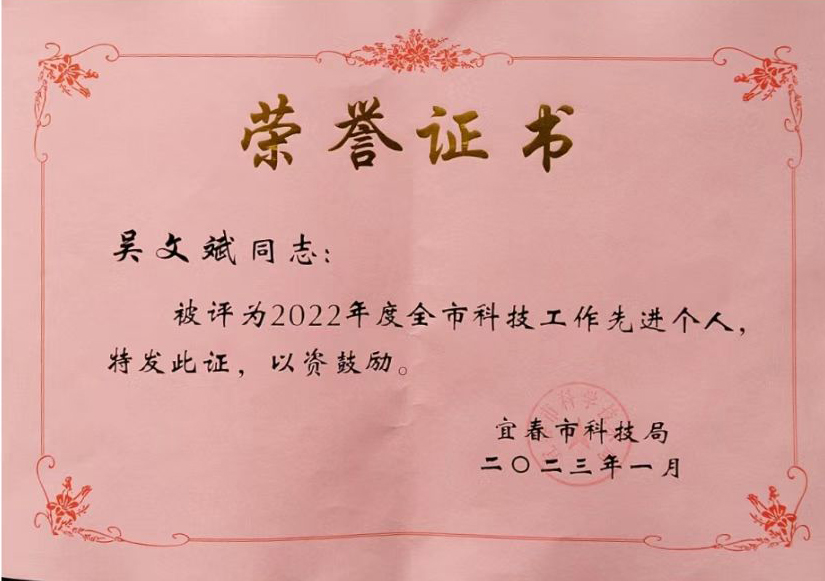 荣誉证书
吴文斌同志：
被评为2022年度全市科技工作先进个人，
特发此证，以资鼓励。
宜春市科技局
二〇二三年一月